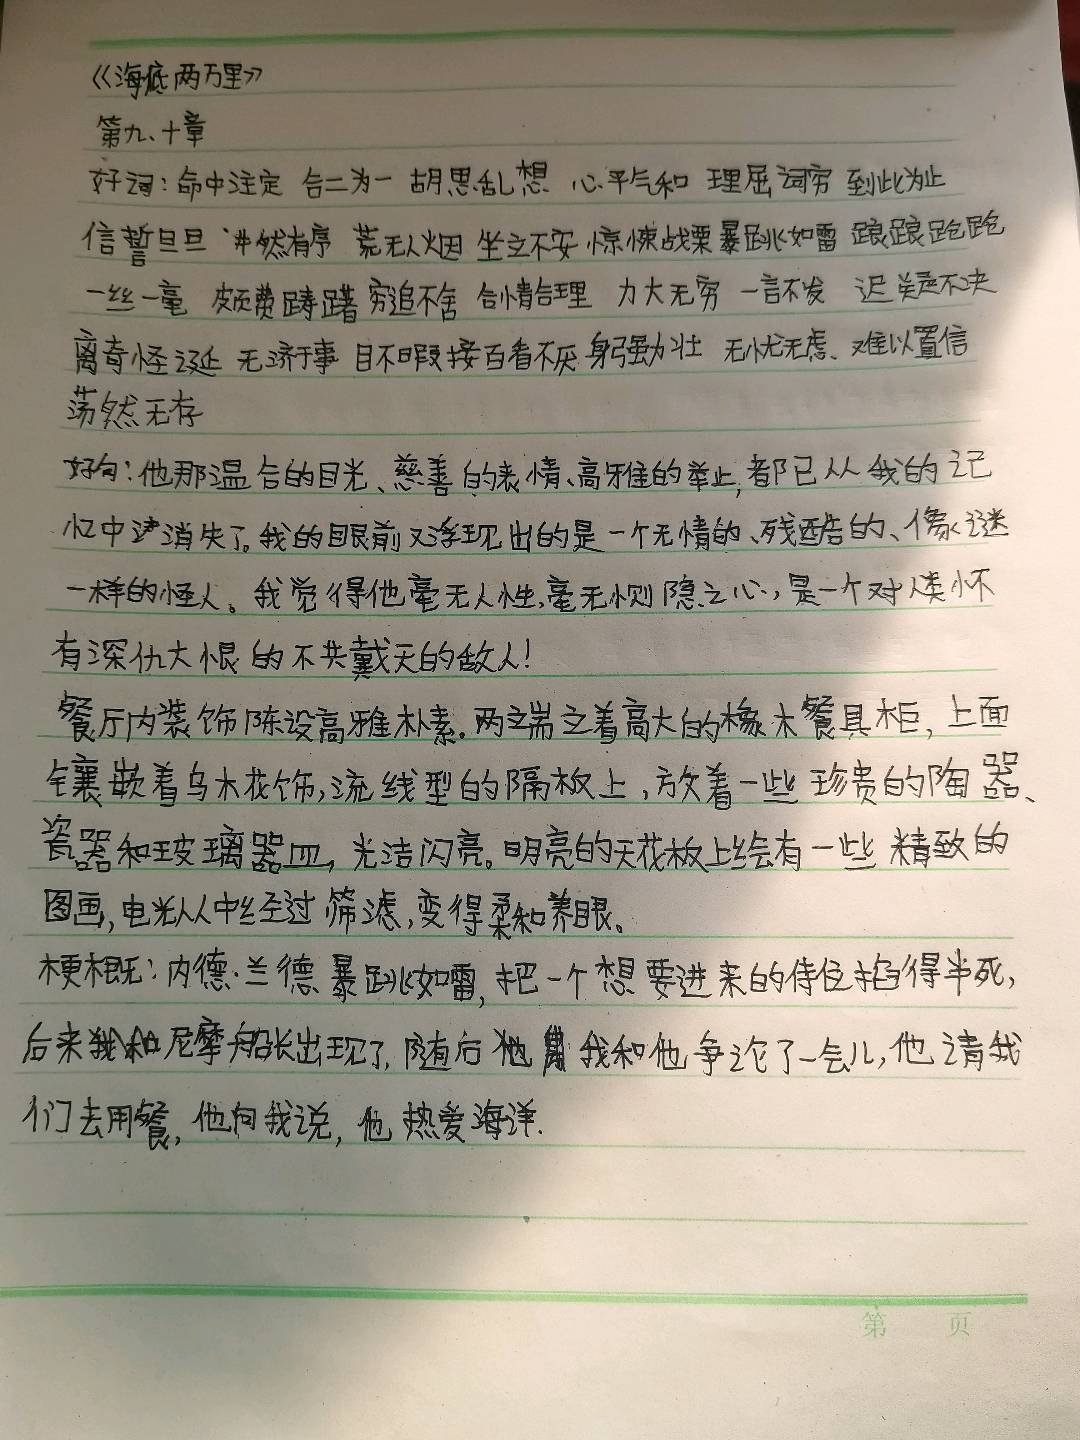 《海底两万里》
第九、十章
好词：命中注定 合二为一 胡思乱想 心平气和 理屈词穷 到此为止
信誓旦旦 井然有序 荒无人烟 坐立不安 惊悚战栗 暴跳如雷 踉踉跄跄
一丝一毫 颇费踌躇 穷追不舍 合情合理 力大无穷 一言不发 迟疑不决
离奇怪诞 无济于事 目不暇接 百看不厌 身强力壮 无忧无虑、难以置信
荡然无存
好句：他那温合的目光、慈善的表情、高雅的举止，都已从我的记
忆中消失了。我的眼前又浮现出的是一个无情的、残酷的、像谜
一样的怪人。我觉得他毫无人性，毫无恻隐之心，是一个对人类怀
有深仇大恨的不共戴天的敌人！
餐厅内装饰陈设高雅朴素。两端立着高大的橡木餐具柜，上面
镶嵌着乌木花饰，流线型的隔板上，放着一些珍贵的陶器、
瓷器和玻璃器皿，光洁闪亮。明亮的天花板上绘有一些精致的
图画，电光从中经过筛滤，变得柔和养眼。
梗概：内德·兰德暴跳如雷，把一个想要进来的侍位掐得半死，
后来我和尼摩船长出现了，随后他我和他争论了一会儿，他请我
们去用餐，他向我说，他热爱海洋.
第 页